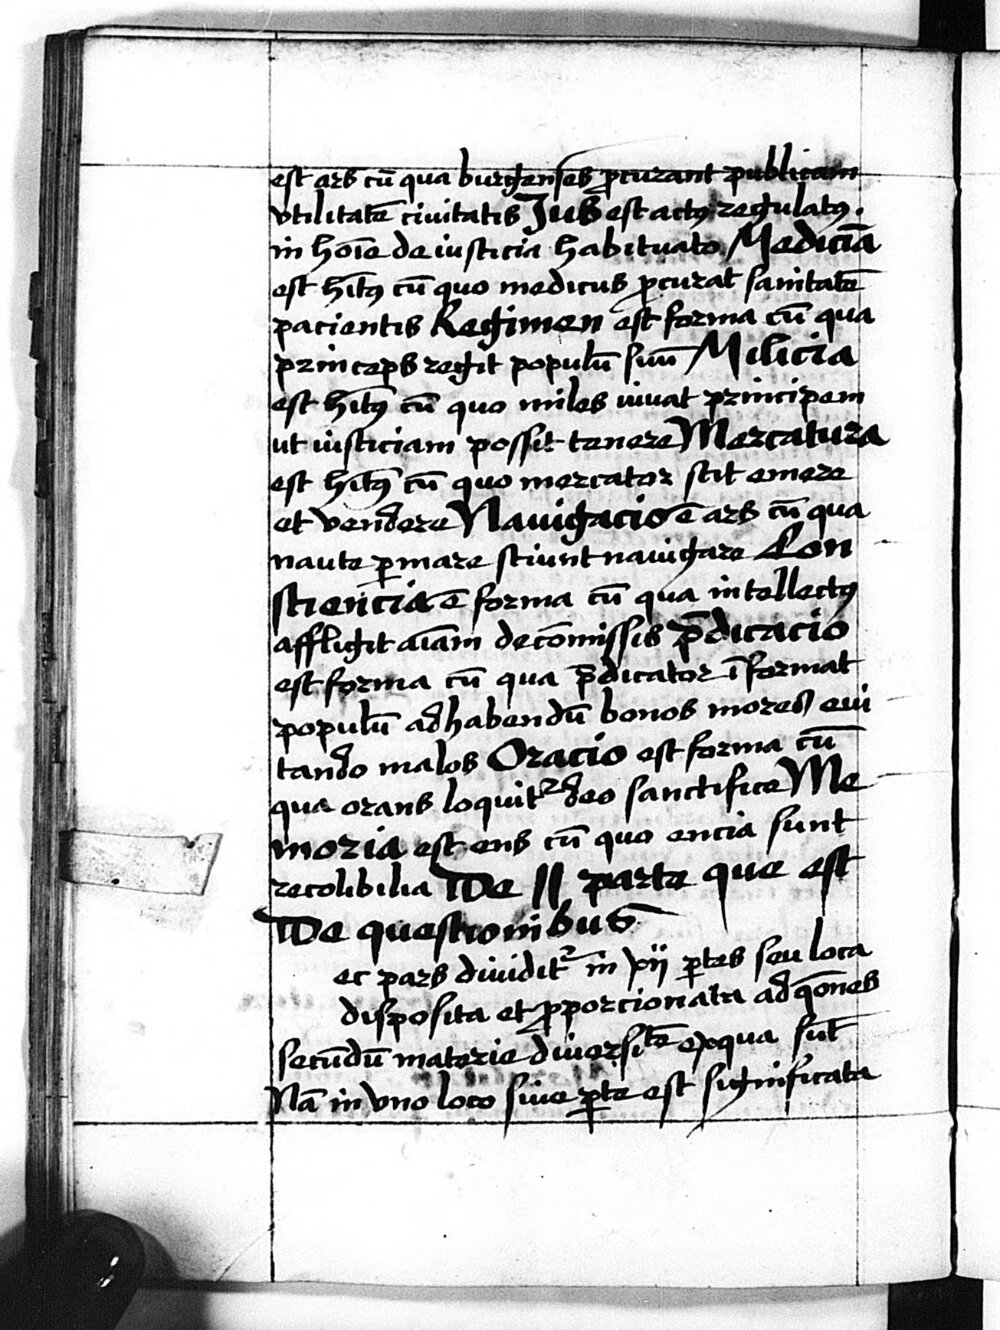 est ars cū qua burgenses ꝓcurant publicam
vtilitatē ciuitatis Jus est actꝰ regulatꝰ .
in hoīe de iusticia habituato Mediciā
est hītꝰ cū quo medicus ꝓcurat sanitatē
pacientis Regimen est forma cū qua
princeps regit populū suū Milicia
est hītꝰ cū quo miles iuuat principem
ut iusticiam possit tenere Mercatura
est hītꝰ cū quo mercator scit emere
et vendere Nauigacio ē ars cū qua
naute ꝑ mare sciunt nauigare Con
sciencia ē forma cū qua intellectꝰ
affligit aīam de cōmissis p̄dicacio
est forma cū qua p̄dicator īformat
populū ad habendū bonos mores eui
tando malos Oracio est forma cū
qua orans loquitᷣ deo sanctifice Me
moria est ens cū quo encia sunt
recolibilia De II parte que est
De questionibus
ec pars diuiditᷣ in xij ꝑtes seu loca
disposita et ꝓporcionata ad qōnes
secūdū materie diuersitatē ex qua sūt
Nā in vno loco siue ꝑte est significata